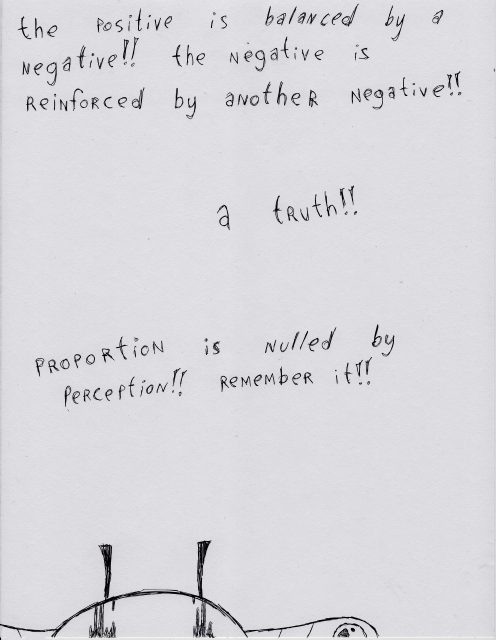 the positive is balanced by a
Negative!! the Negative is
ReiNforced by aNotheR Negative!!
a tRuth!!
PROPORtioN is Nulled by
PeRceptioN!! ReMeMbeR it!!